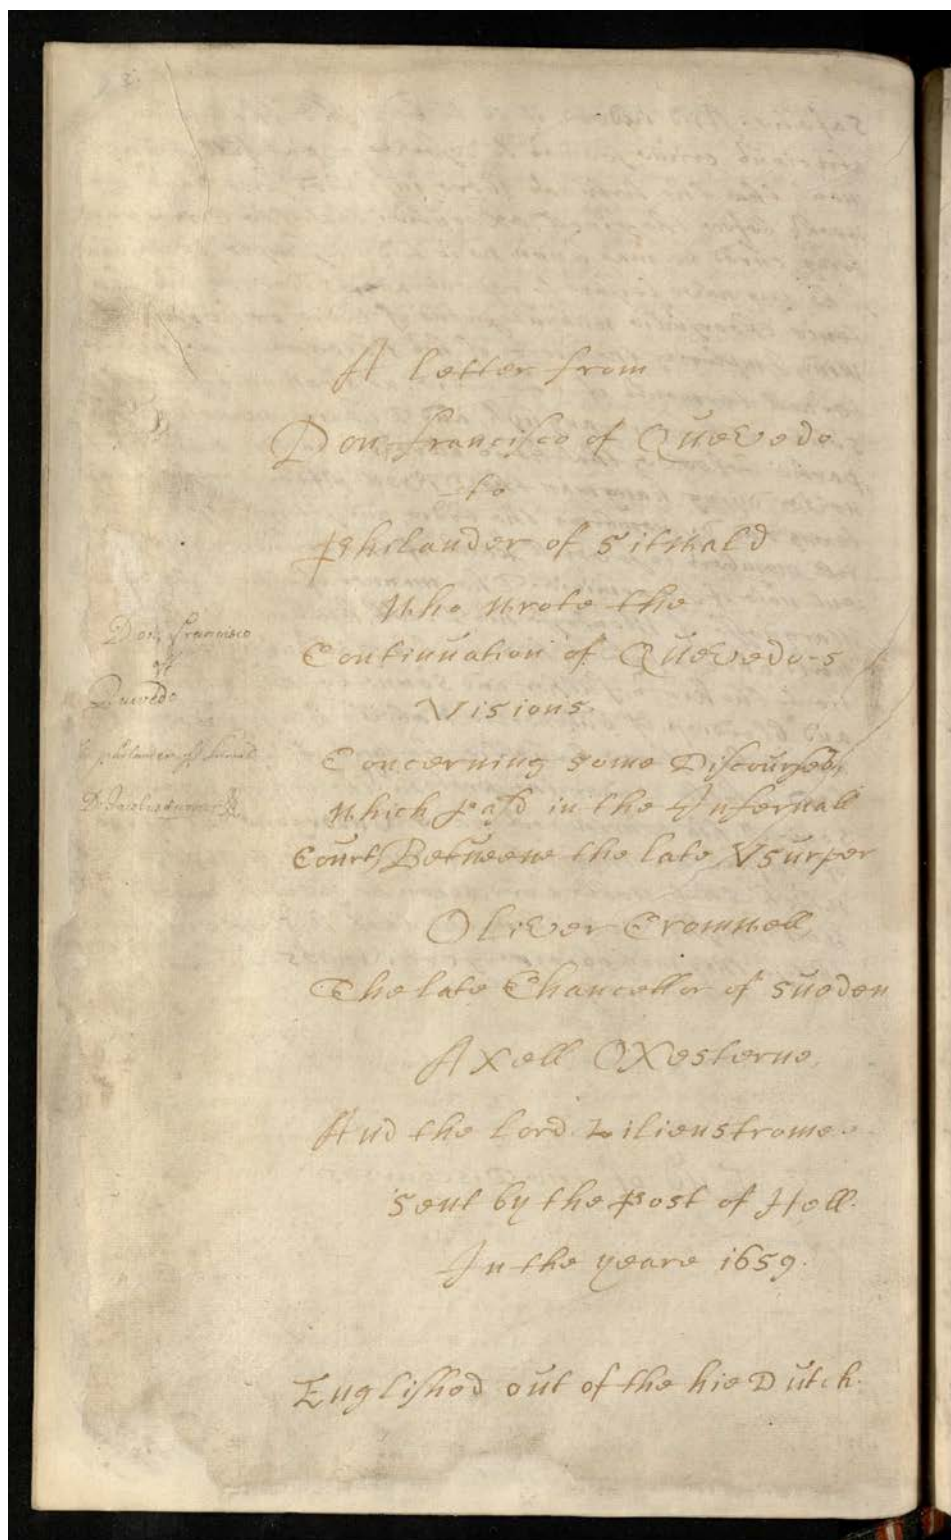 A letter from
Don francisco of Quevedo
to
Philander of Sitwald
who wrote the
Continuation of Quevedo-s
Visions.
Concerning some Discourses,
which past in the Infernall
Court, Betweene the late Vsurper
Oliver Cromwell,
The late Chancellor of Sueden
Axell Oxesterne,
And the Lord Lilienstrome.
Sent by the Post of Hell.
In the yeare 1659.
Englished out of the hie Dutch.
Don francisco
of
Quevedo